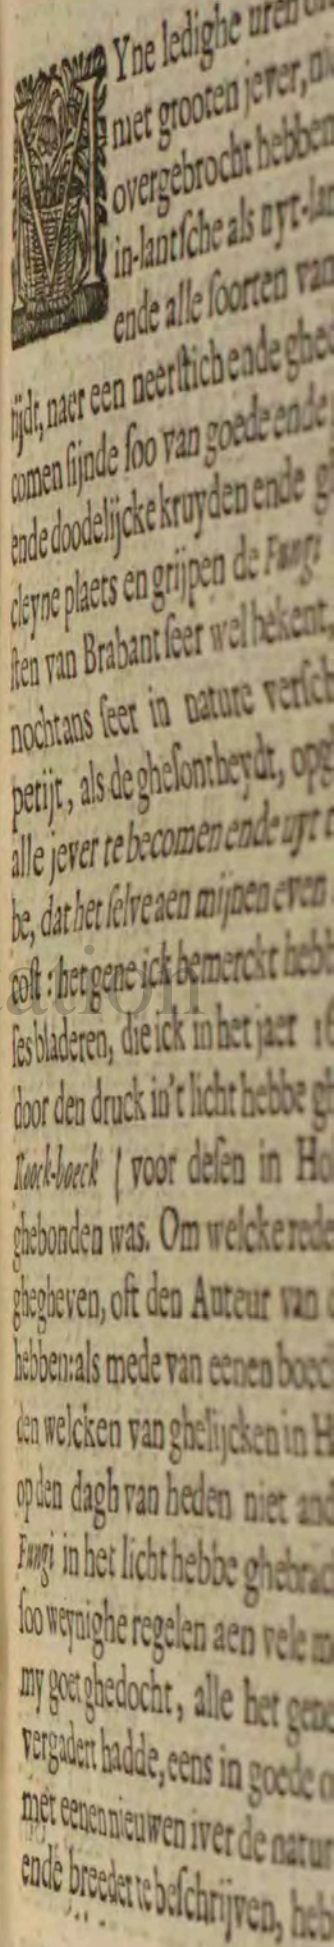 MYne ledighe uren
met grooten jever,
overgebrocht hebben
in-lantsche als uyt-lan
ende alle soorten van
tijdt, naer een neerstich ende ghe
comen sijnde soo van goede ende
ende doodelijcke kruyden ende
cleyne plaets en grijpen de Fungi
sten van Brabant seer wel bekent,
nochtans seer in nature versch
petijt, als de ghesontheydt, opg
alle jever te becomen ende uyt
be, dat het selve aen mijnen even
cost : het gene ick bemerckt hebb
ses bladeren, die ick in het jaer 16
door den druck in't licht hebbe gh
Koock-boeck ( voor desen in Ho
ghebonden was. Om welcke rede
ghegheven, oft den Auteur van
hebben: als mede van eenen boec
den welcken van ghelijcken in H
op den dagh van heden niet and
Fungi in het licht hebbe ghebrac
soo weynighe regelen aen vele m
my goet ghedocht, alle het gene
vergadert hadde, eens in goede o
met eenen nieuwen iver de natur
ende breeder te beschrijven, heb